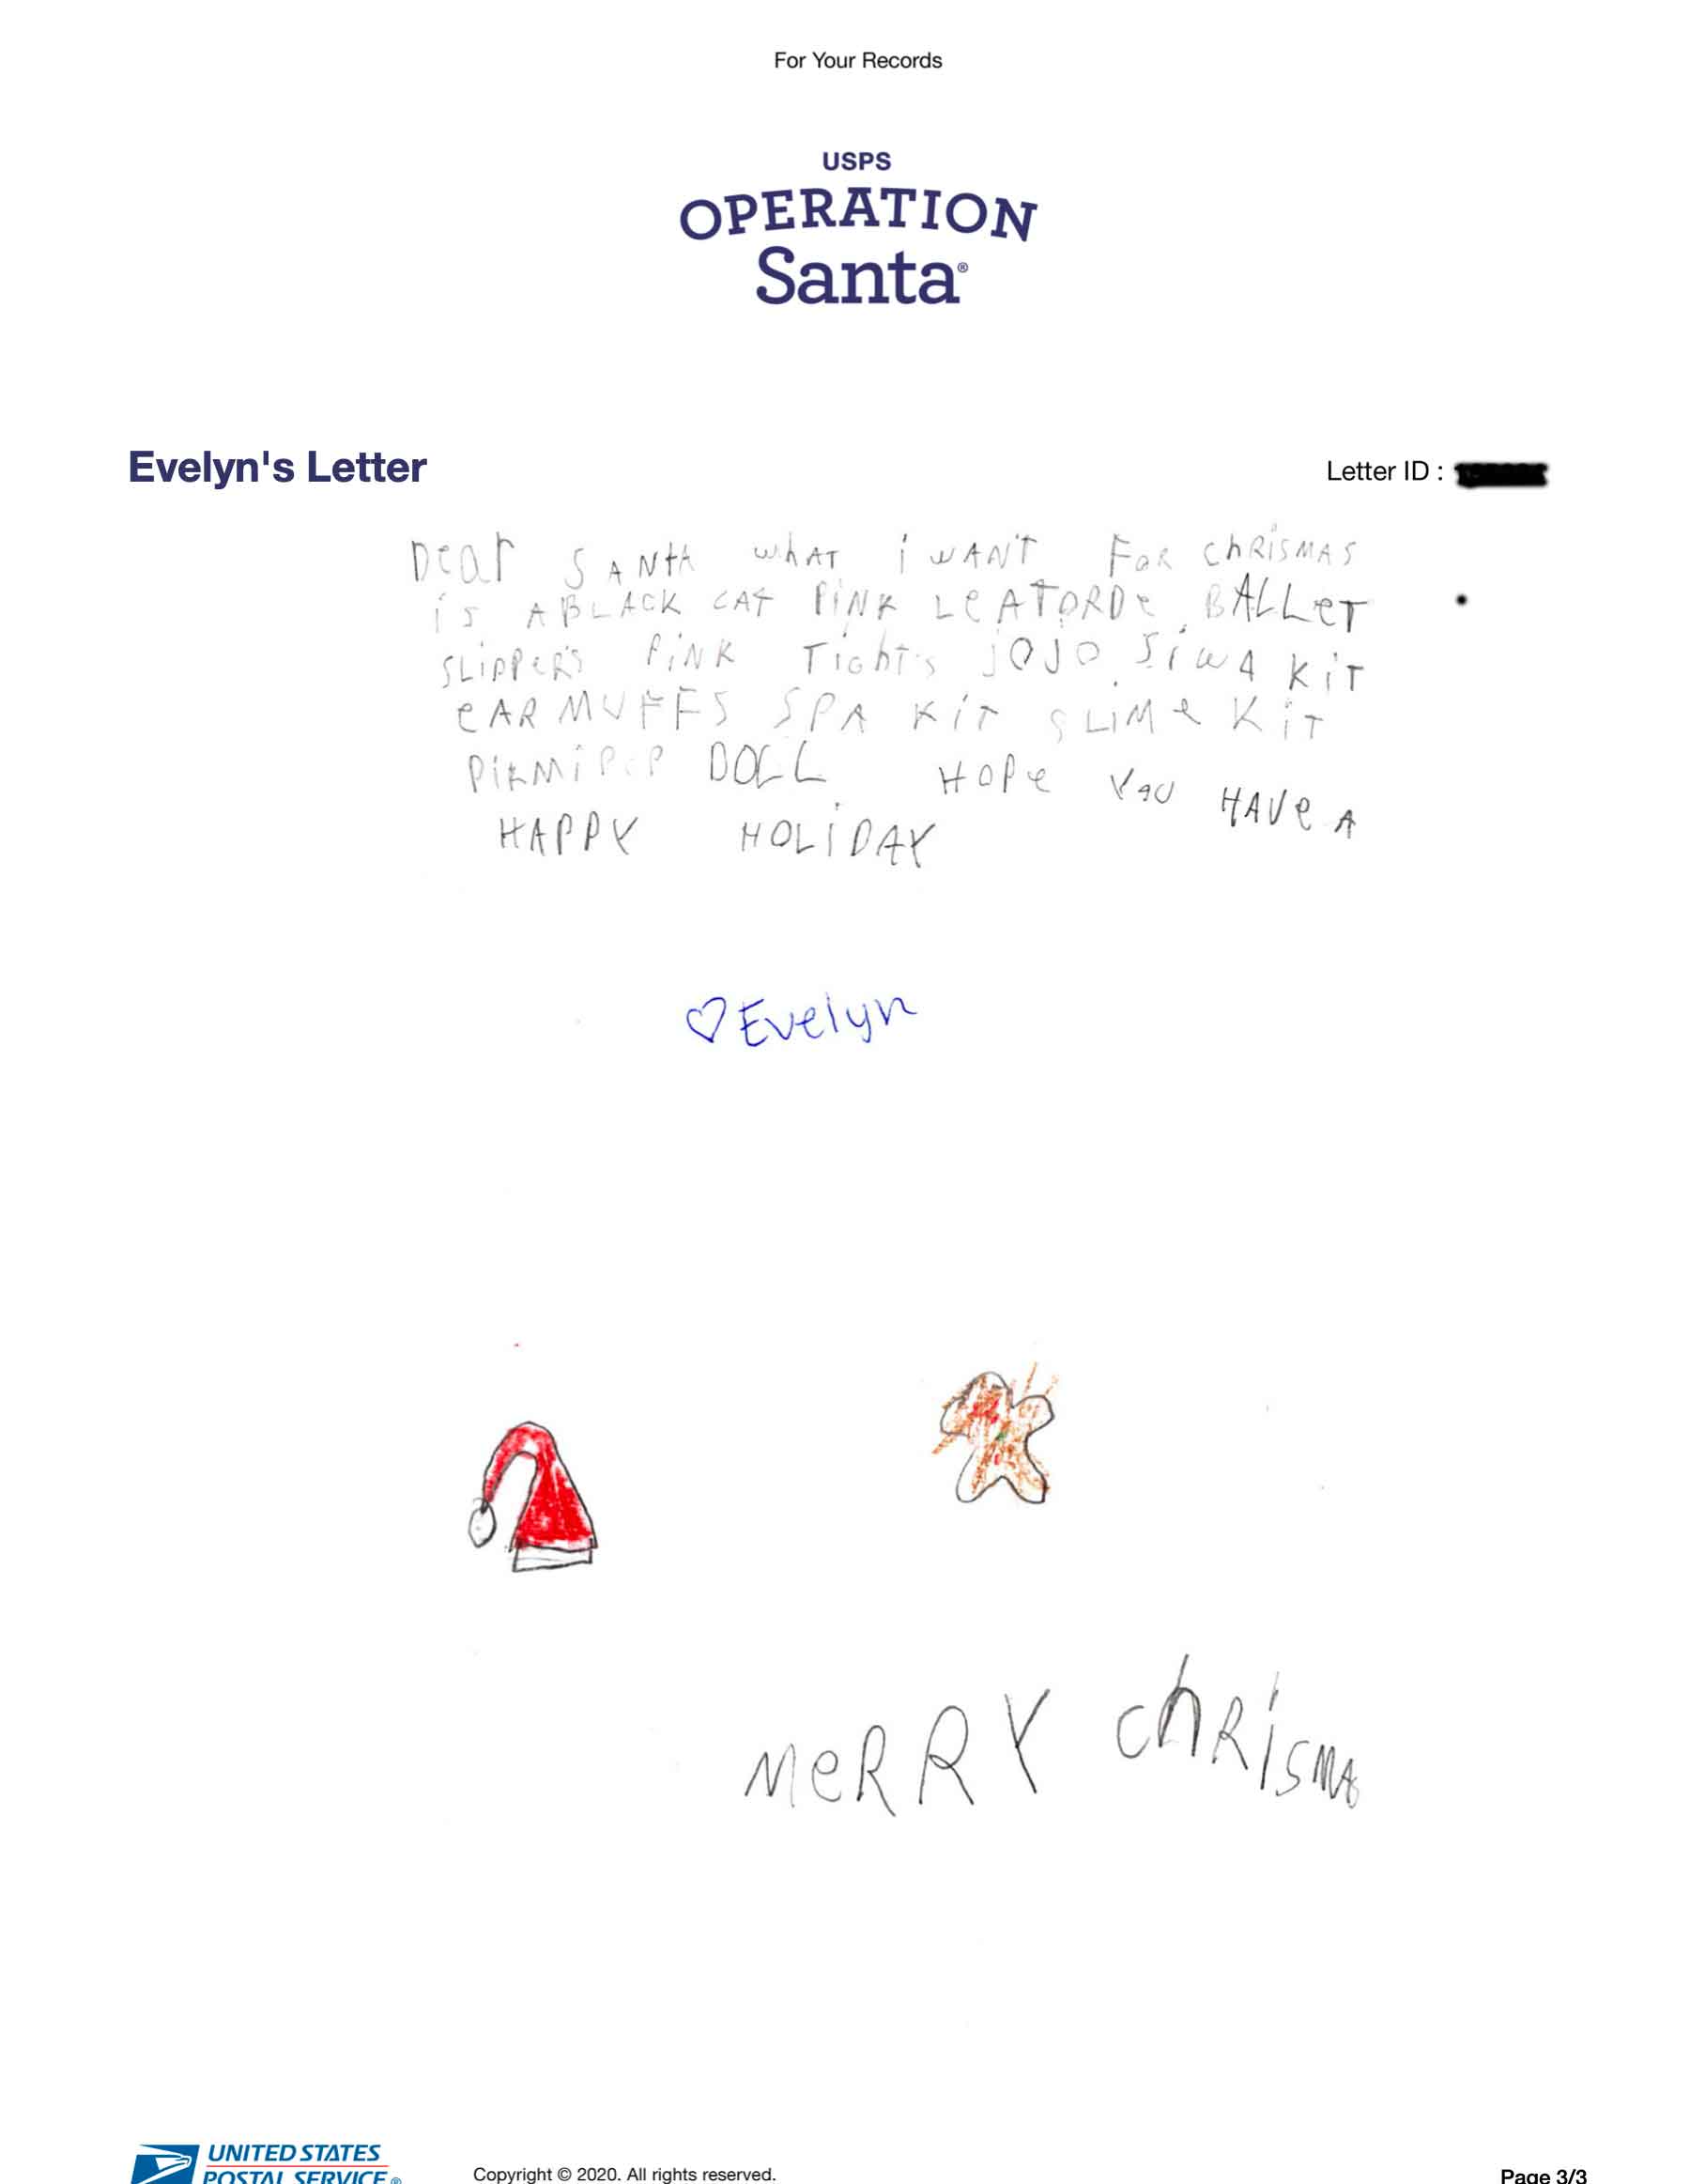 For Your Records
USPS
OPERATION
Santa®
Evelyn's Letter
Letter ID :
Dear SANtA whAT i WANT FOR ChRiSMAS
is A BLACK CAT PiNK LeATORDe BALLeT
SLiPPeR'S PiNK TighTs JOJO SiWA KiT
eAR MUFFS SPA KiT SLiMe KiT
PiKMiPOP DOLL HOPe YOU HAVe A
HAPPY HOLiDAY
♡Evelyn
MeRRY ChRiSMAS
UNITED STATES
POSTAL SERVICE®
Copyright © 2020. All rights reserved.
Page 3/3